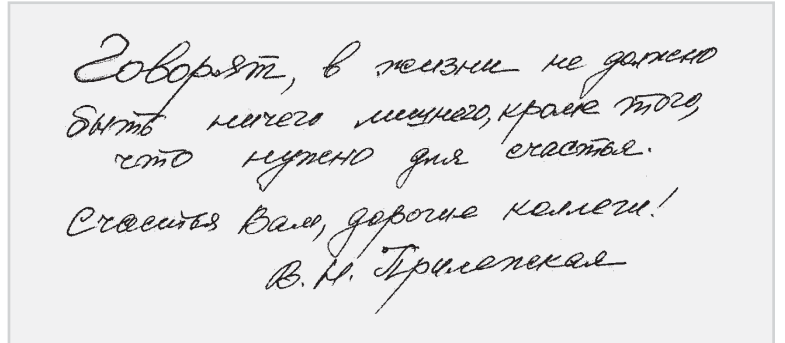 Говорят, в жизни не должно
быть ничего лишнего, кроме того,
что нужно для счастья.
Счастья Вам, дорогие коллеги!
В.Н. Прилепская